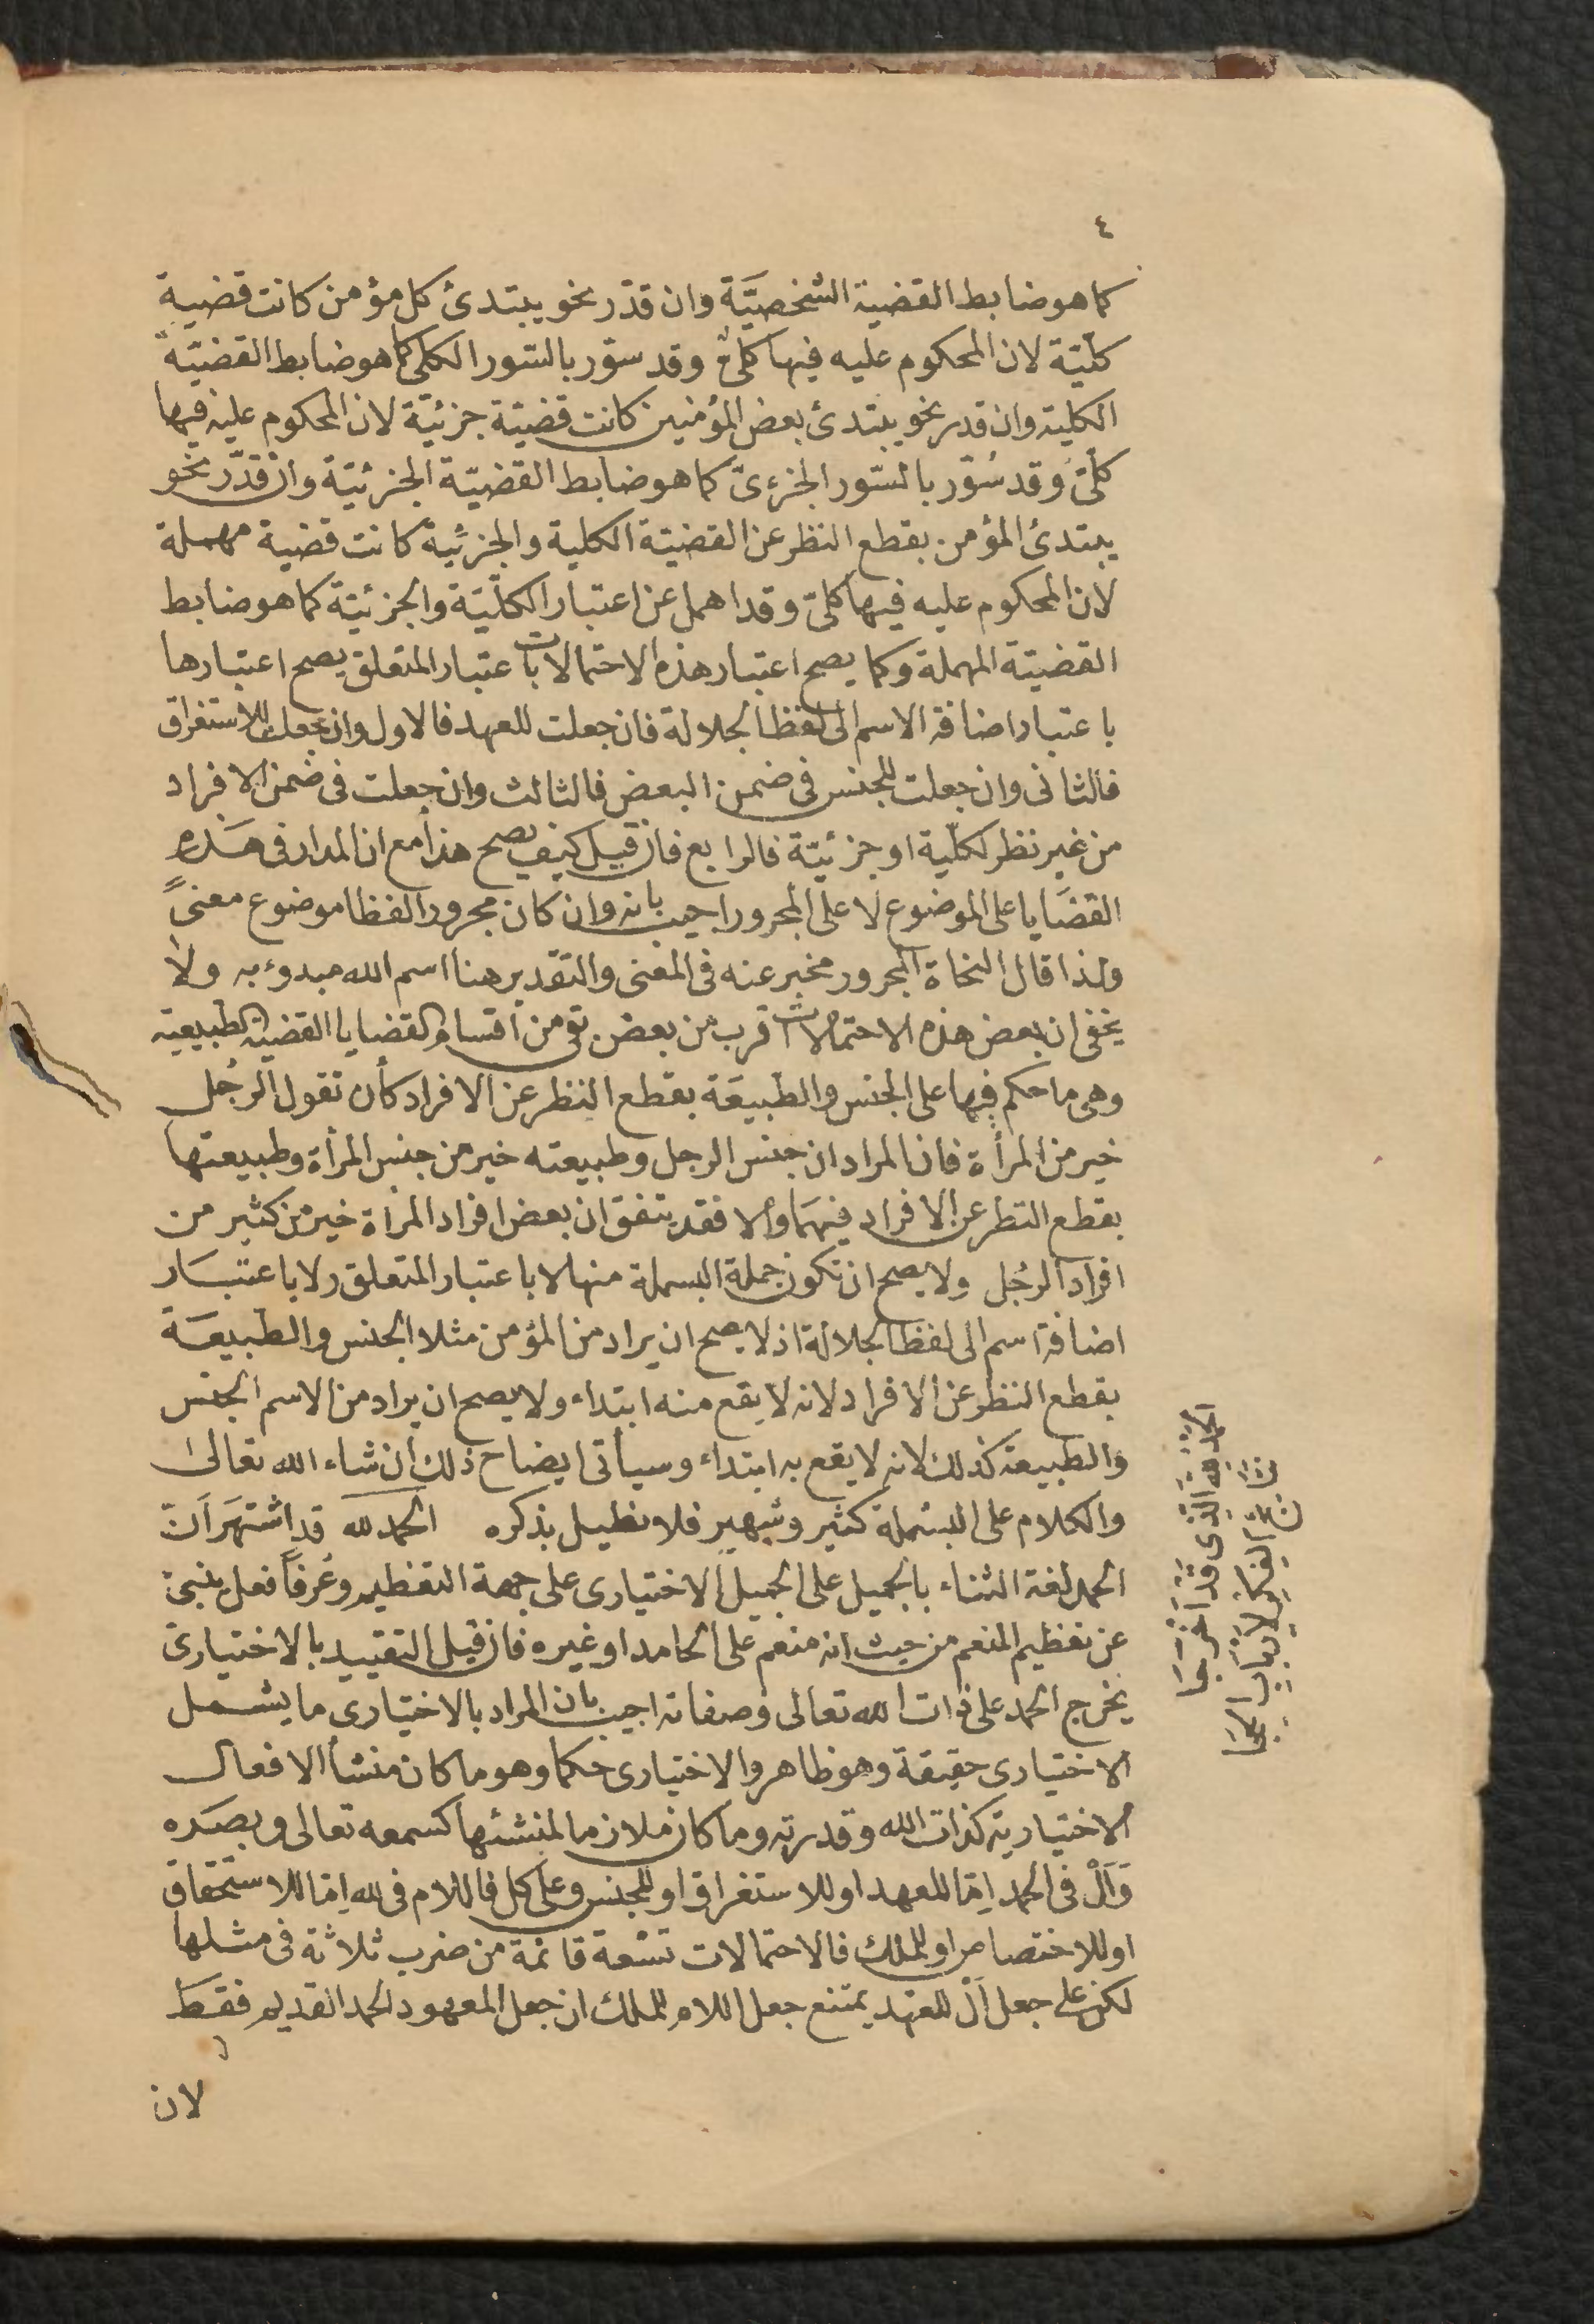 ٤
كما هو ضابط القضية الشخصيَّة وان قدّر نحو يبتدئ كل مؤمن كانت قضية
كلّيّة لان المحكوم عليه فيها كلىّ وقد سوّر بالسّور الكلى كما هو ضابط القضيّة
الكليّة وان قدر نحو يبتدئ بعض المؤمنين كانت قضيّة جزئيّة لان المحكوم عليه فيها
كلّىّ وقد سُوّر بالسّور الجزءىّ كما هو ضابط القضيّة الجزئيّة وان قدّر نحو
يبتدئ المؤمن بقطع النظر عن القضيّة الكلية والجزئيّة كانت قضية مهملة
لان المحكوم عليه فيها كلىّ وقد اهمل عن اعتبار الكلّيّة والجزئيّة كما هو ضابط
القضيّة المهملة وكما يصح اعتبار هذه الاحتمالات باعتبار المتعلق يصح اعتبارها
باعتبار اضافة الاسم الى لفظ الجلالة فان جعلت للعهد فالاول وان جعلت للاستغراق
فالثانى وان جعلت للجنس فى ضمن البعض فالثالث وان جعلت فى ضمن الافراد
من غير نظر لكلّية او جزئيّة فالرابع فان قيل كيف يصح هذا مع ان المدار فى هَذه
القضَايا على الموضوع لا على المجرور اجيب بانه وان كان مجرورا لفظا موضوع معنىً
ولذا قال النحاة المجرور مخبر عنه فى المعنى والتقدير هنا اسم الله مبدوء به ولا
يخفى ان بعض هذه الاحتمالات اقرب من بعض بقى من اقسام القضايا القضية الطبيعية
وهى ما حكم فيها على الجنس والطبيعَة بقطع النظر عن الافراد كأن تقول الرجُل
خير من المرأة فان المراد ان جنس الرجل وطبيعته خير من جنس المرأة وطبيعتها
بقطع النظر عن الافراد فيهمَا والا فقد يتفق ان بعض افراد المرأة خير من كثير من
افراد الرجُل ولا يصح ان تكون جملة البسملة منها لا باعتبار المتعلق ولا باعتبَار
اضافة اسم الى لفظ الجلالة اذ لا يصح ان يراد من المؤمن مثلا الجنس والطبيعَة
بقطع النظر عن الافراد لانه لا يقع منه ابتداء ولا يصح ان يراد من الاسم الجنس
والطبيعة كذلك لانه لا يقع به ابتداء وسيأتى ايضاح ذلك ان شاء الله تعالىٰ
والكلام على البسْملة كثير وشهير فلا نطيل بذكره الحمد لله قد اشتهَر اَن
الحمد لغة الثناء بالجميل على الجميل الاختيارى على جهة التعظيم وعُرفاً فعل ينبئ
عن تعظيم المنعم من حيث انه منعم على الحامد او غيره فان قيل التقييد بالاختيارى
يخرج الحمد على ذات الله تعالى وصفاته اجيب بان المراد بالاختيارى ما يشمل
الاختيارى حقيقة وهو ظاهر والاختيارى حكما وهو ما كان منشأ الافعال
الاختيارية كذات الله وقدرته وما كان ملازما لمنشئها كسمعه تعالى وبصَره
وَاَلْ فى الحمد اِمّا للعهد او للاستغراق او للجنس وعلى كل فاللام فى لله اِمّا للاستحقاق
او للاختصاص او للملك فالاحتمالات تسْعة قائمة من ضرب ثلاثة فى مثلها
لكن على جعل اَلْ للعهد يمتنع جعل اللام للملك ان جعل المعهود الحمد القديم فقط
لان
الحمد لله الذى قد اخرجا
نتائج الفكر لارباب الحجا